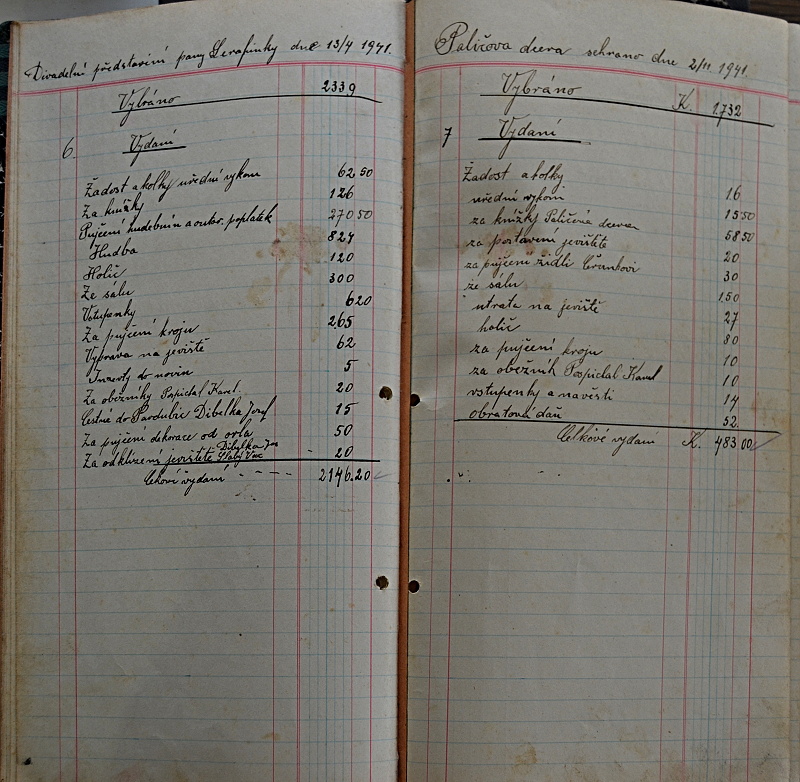 Divadelní představení pany Serafinky dne 13/4 1941.
Vybráno 2339
6. Vydaní
Žadost a kolky uřední vykon 62 50
Za knížky 126
Pujčení hudebnin a autor. poplatek 270 50
Hudba 824
Holič 120
Ze sálu 300
Vstupenky 6 20
Za pujčení kroju 265
Vyprava na jeviště 62
Inzerty do novin 5
Za oběžníky Pospichal Karel. 20
Cestné do Pardubic Dibelka Josef 15
Za pujčeni dekorace od orla 50
Za odklizení jevištěte Dibelka Jos 20
Slabý Vac
Celkové vydani 2146.20
Paličova dcera sehrano dne 2/11 1941
Vybráno K. 1732
7 Vydaní
Žadost a kolky
uřední vykon 16
za knížky Paličova dcera 15 50
za postavení jeviště 58 50
za pujčení židli 20
ze sálu 30
utrata na jeviště 150
holič 27
za pujčeni kroju 80
za oběžník Pospichal Karel 10
vstupenky a navěsti 10
obratová daň 14
52
Celkové vydani K. 483 00